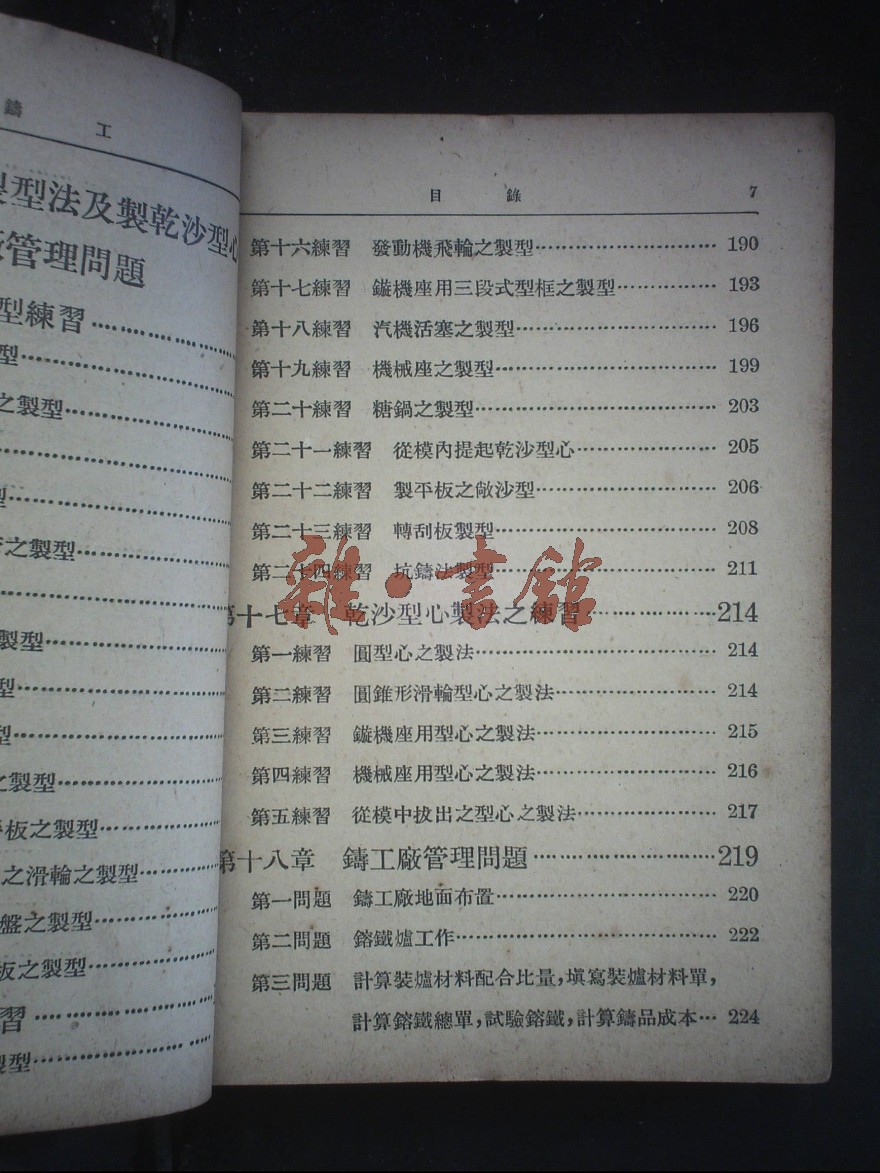 鑄工
製型法及製乾沙型心
廠管理問題
型練習
型
之製型
型
之製型
製型
型
型
之製型
板之製型
之滑輪之製型
盤之製型
板之製型
習
製型
目錄 7
第十六練習 發動機飛輪之製型 190
第十七練習 鏇機座用三段式型框之製型 193
第十八練習 汽機活塞之製型 196
第十九練習 機械座之製型 199
第二十練習 糖鍋之製型 203
第二十一練習 從模內提起乾沙型心 205
第二十二練習 製平板之敞沙型 206
第二十三練習 轉刮板製型 208
第二十四練習 坑鑄法製型 211
第十七章 乾沙型心製法之練習 214
第一練習 圓型心之製法 214
第二練習 圓錐形滑輪型心之製法 214
第三練習 鏇機座用型心之製法 215
第四練習 機械座用型心之製法 216
第五練習 從模中拔出之型心之製法 217
第十八章 鑄工廠管理問題 219
第一問題 鑄工廠地面布置 220
第二問題 鎔鐵爐工作 222
第三問題 計算裝爐材料配合比量,填寫裝爐材料單,
計算鎔鐵總單,試驗鎔鐵,計算鑄品成本 224
雜·書館